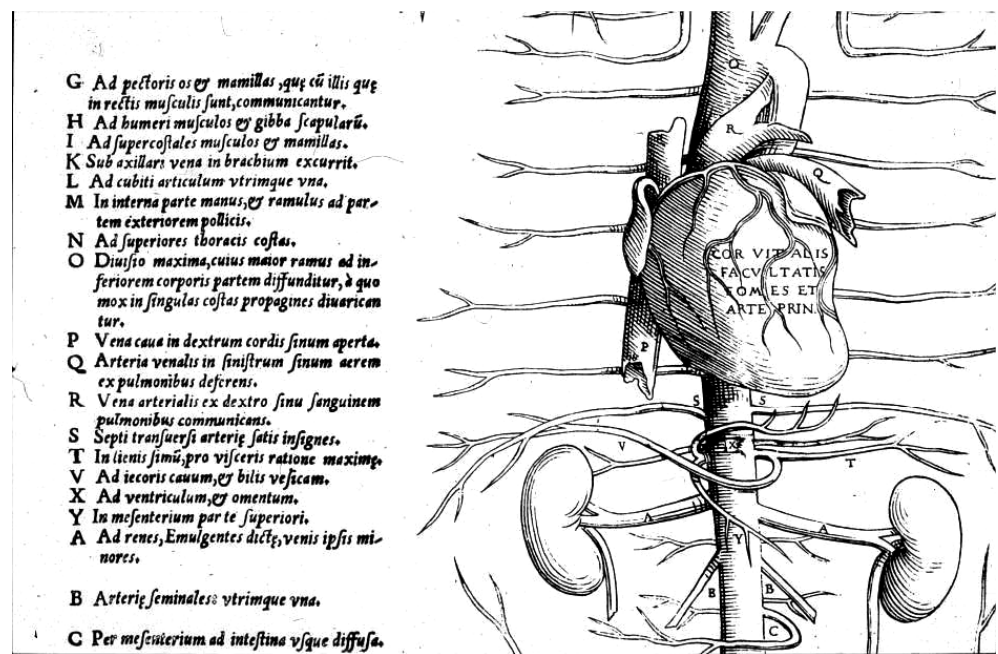 G Ad pectoris os & mamillas, quę cū illis quę
in rectis muſculis ſunt, communicantur.
H Ad humeri muſculos & gibba ſcapularū.
I Ad ſupercoſtales muſculos & mamillas.
K Sub axillari vena in brachium excurrit.
L Ad cubiti articulum vtrimque vna.
M In interna parte manus, & ramulus ad par-
tem exteriorem pollicis.
N Ad ſuperiores thoracis coſtas.
O Diuiſio maxima, cuius maior ramus ad in-
feriorem corporis partem diffunditur, à quo
mox in ſingulas coſtas propagines diuarican
tur.
P Vena caua in dextrum cordis ſinum aperta.
Q Arteria venalis in ſiniſtrum ſinum aerem
ex pulmonibus deferens.
R Vena arterialis ex dextro ſinu ſanguinem
pulmonibus communicans.
S Septi tranſuerſi arterię ſatis inſignes.
T In lienis ſimū, pro viſceris ratione maximę.
V Ad iecoris cauum, & bilis veſicam.
X Ad ventriculum, & omentum.
Y In meſenterium parte ſuperiori.
A Ad renes, Emulgentes dictę, venis ipſis mi-
nores.
B Arterię ſeminales vtrimque vna.
C Per meſenterium ad inteſtina vſque diffuſa.
O
R
Q
COR VITALIS
FACVLTATIS
FOMES ET
ARTE PRIN.
P
S S
V X T
A A
Y
B B
C